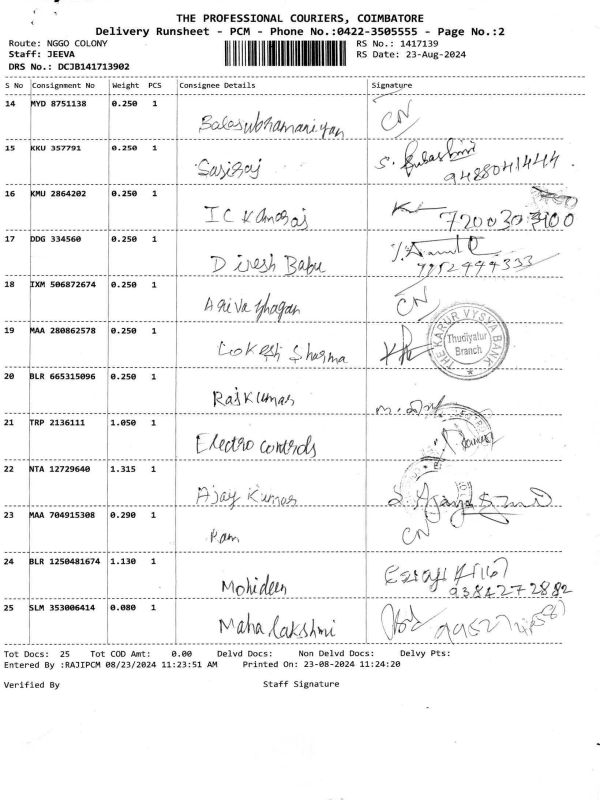 THE PROFESSIONAL COURIERS, COIMBATORE
Delivery Runsheet - PCM - Phone No.:0422-3505555 - Page No.:2
Route: NGGO COLONY RS No.: 1417139
Staff: JEEVA RS Date: 23-Aug-2024
DRS No.: DCJB141713902
S No Consignment No Weight PCS Consignee Details Signature
14 MYD 8751138 0.250 1
Balasubhamaniyan CN
15 KKU 357791 0.250 1
Sasiraj S. Subashini
9488041444
16 KMU 2864202 0.250 1
I C Kamaraj
17 DDG 334560 0.250 1
Dinesh Babu
18 IXM 506872674 0.250 1
Arivazhagan CN
19 MAA 280862578 0.250 1
Lokesh Sharma
THE KARUR VYSYA BANK
Thudiyalur
Branch
20 BLR 665315096 0.250 1
Rajkumar
21 TRP 2136111 1.050 1
Electro controls
22 NTA 12729640 1.315 1
Ajay Kumar
23 MAA 704915308 0.290 1
Ram CN
24 BLR 1250481674 1.130 1
Mohideen
9384272882
25 SLM 353006414 0.080 1
Maha lakshmi
Tot Docs: 25 Tot COD Amt: 0.00 Delvd Docs: Non Delvd Docs: Delvy Pts:
Entered By :RAJIPCM 08/23/2024 11:23:51 AM Printed On: 23-08-2024 11:24:20
Verified By Staff Signature